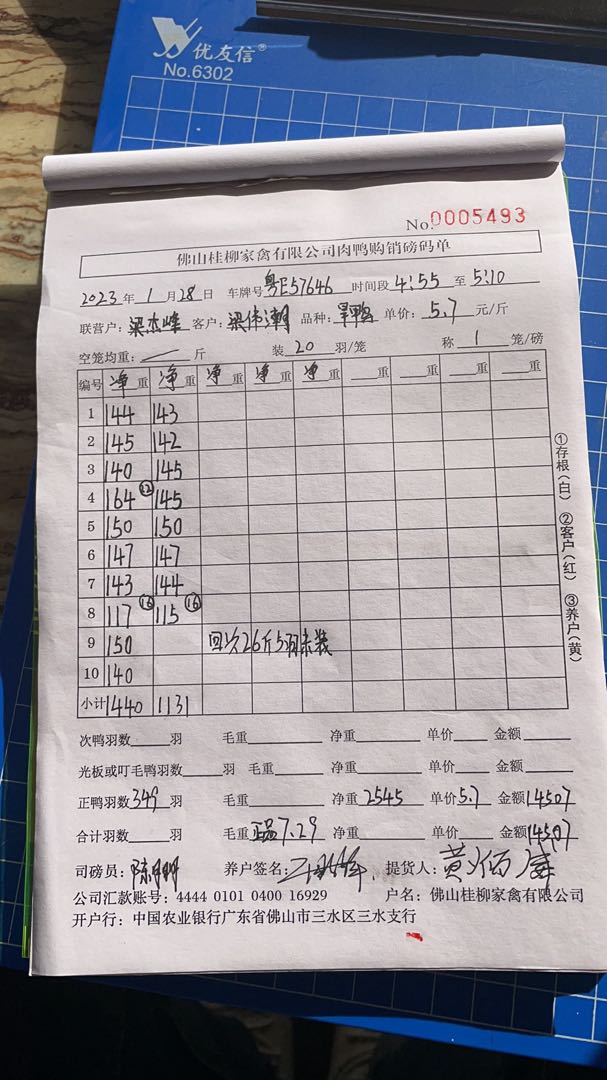 优友信®
No.6302
No. 0005493
佛山桂柳家禽有限公司肉鸭购销磅码单
2023年 1月28日 车牌号 粤E57646 时间段 4:55 至 5:10
联营户: 梁杰峰 客户: 梁伟潮 品种: 旱鸭 单价: 5.7 元/斤
空笼均重: 斤 装 20 羽/笼 称 1 笼/磅
编号 净重 净重 净重 净重 净重 重 重 重 重
1 144 143
2 145 142
3 140 145
4 164 ㉒ 145
5 150 150
6 147 147
7 143 144
8 117 ⑯ 115 ⑯
9 150 回次26斤5羽未装
10 140
小计 1440 1131
①存根(白) ②客户(红) ③养户(黄)
次鸭羽数 羽 毛重 净重 单价 金额
光板或叮毛鸭羽数 羽 毛重 净重 单价 金额
正鸭羽数 349 羽 毛重 净重 2545 单价 5.7 金额 14507
合计羽数 羽 毛重 7.29 净重 单价 金额 14507
司磅员: 养户签名: 提货人: 黄
公司汇款账号: 4444 0101 0400 16929 户名: 佛山桂柳家禽有限公司
开户行: 中国农业银行广东省佛山市三水区三水支行